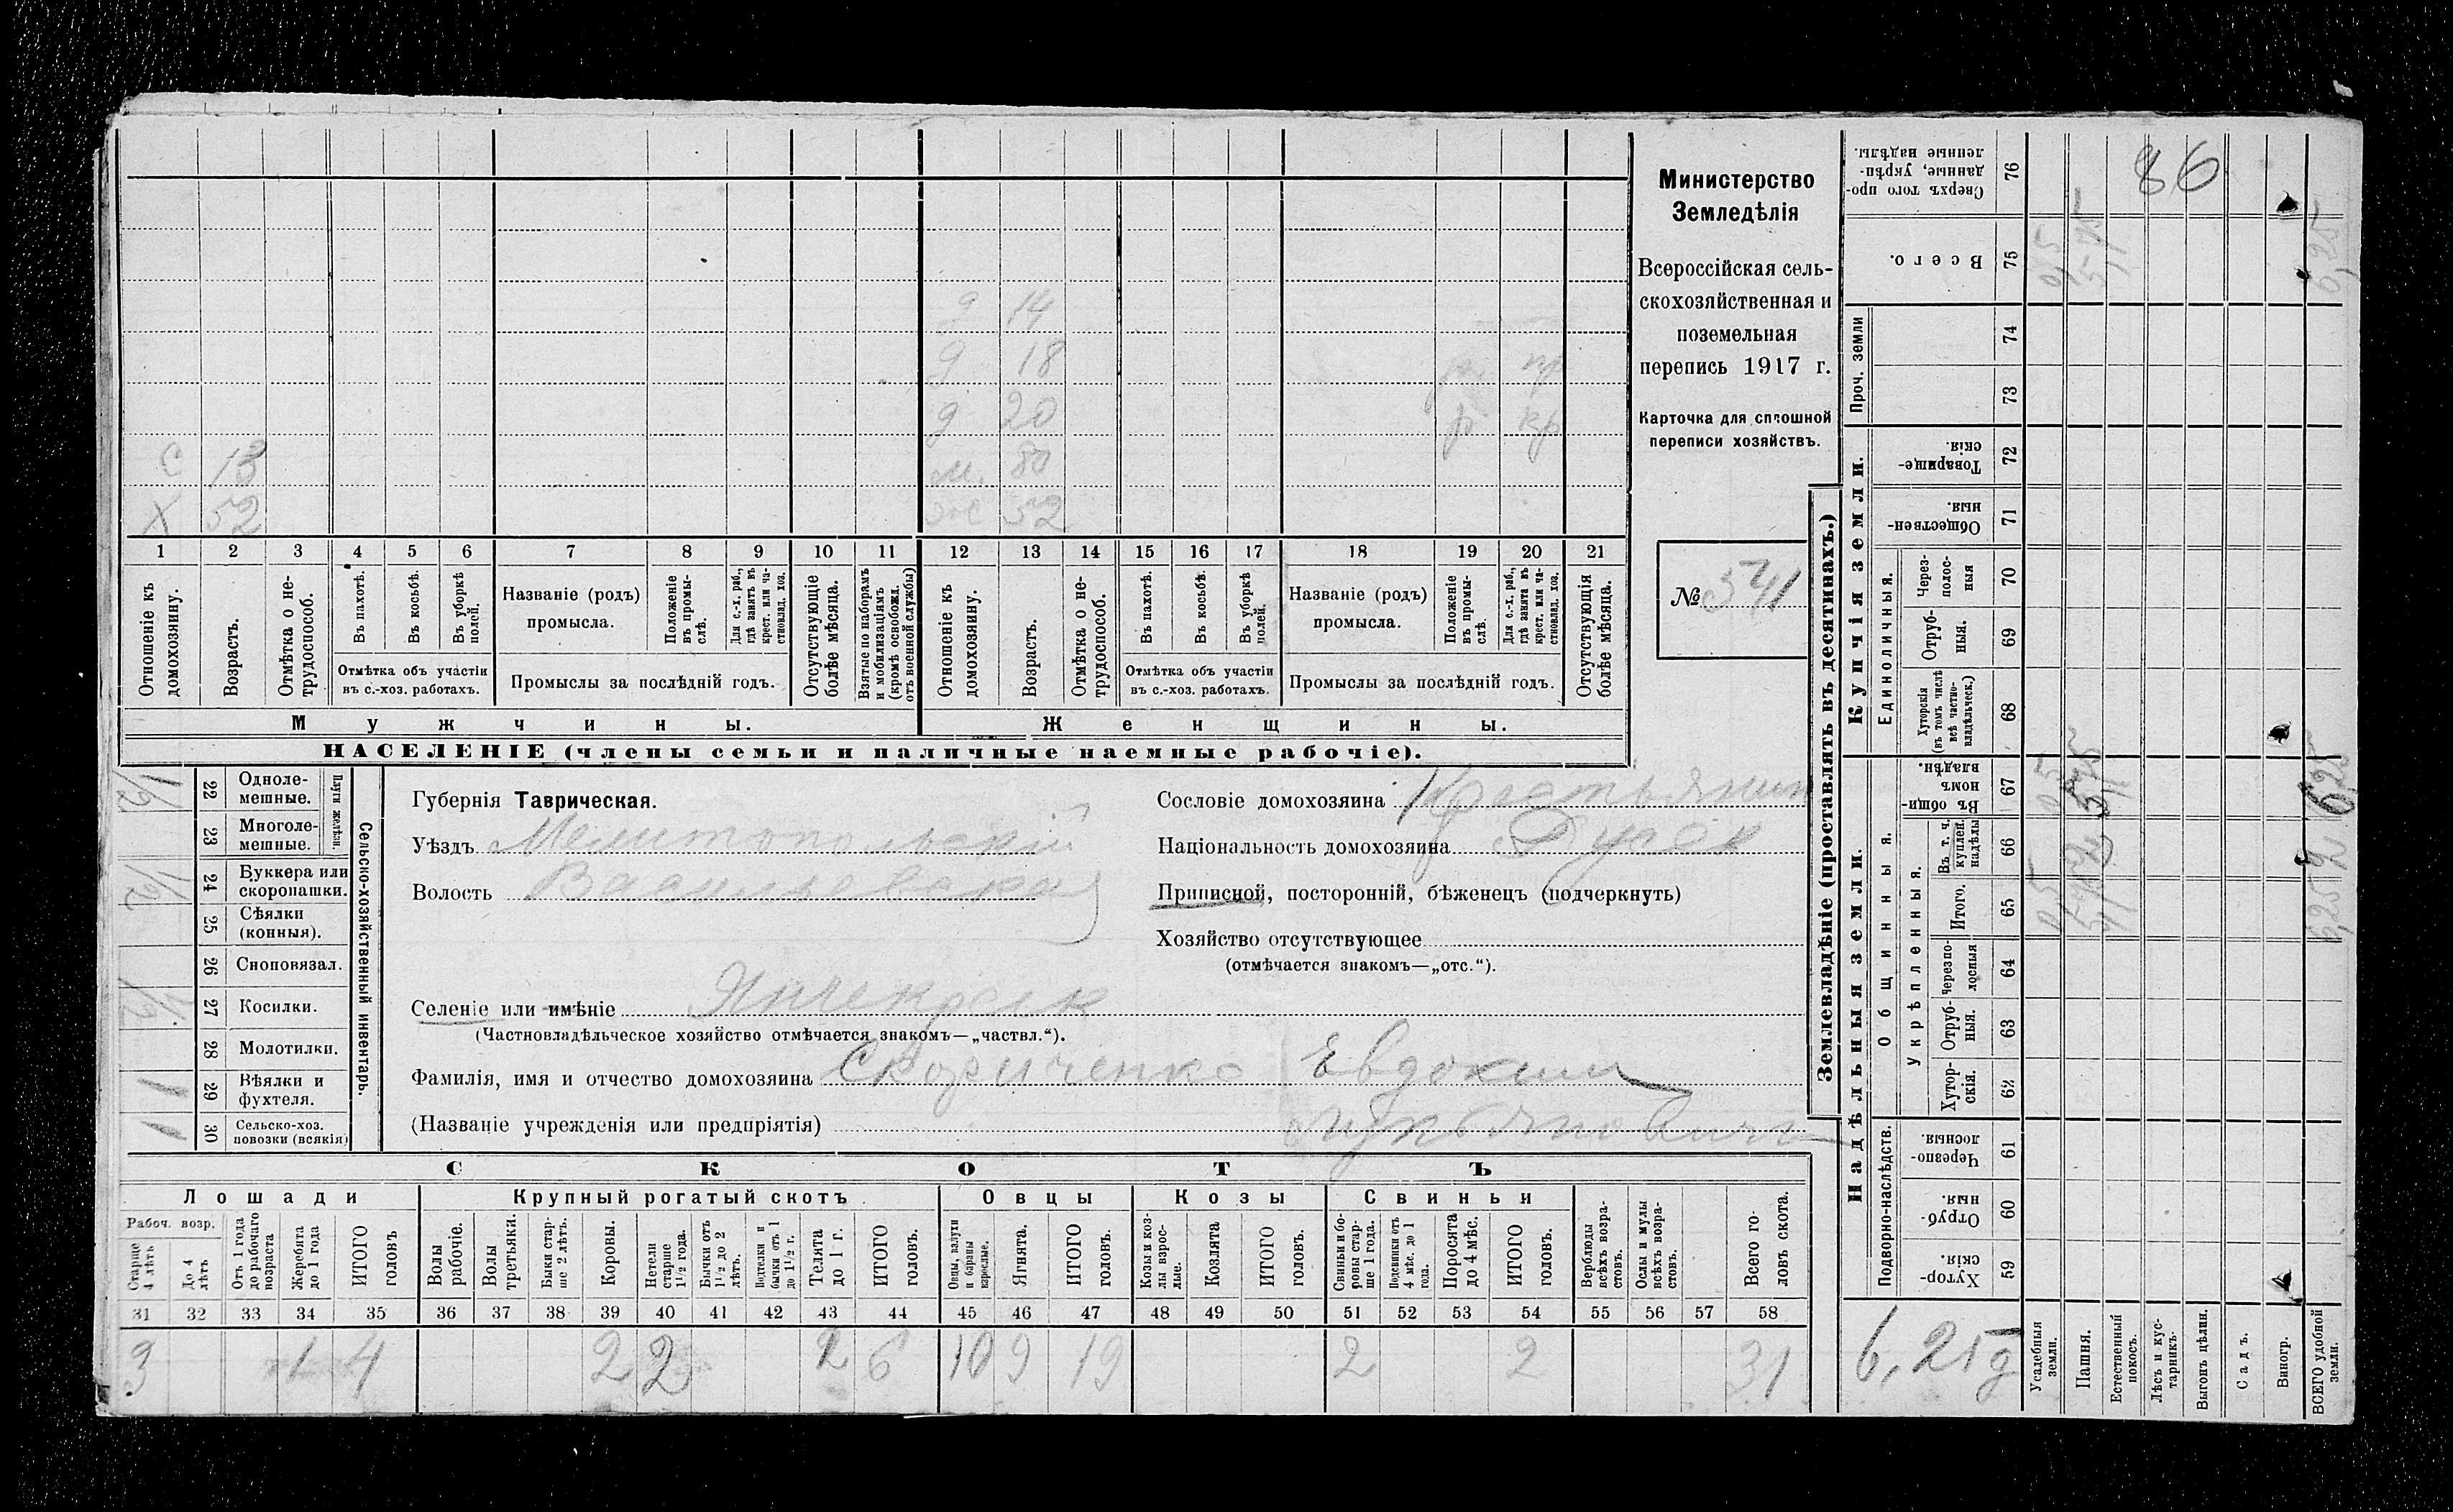 Министерство
Земледѣлія
Всероссійская сель-
скохозяйственная и
поземельная
перепись 1917 г.
Карточка для сплошной
переписи хозяйствъ.
№ 341
9 14
9 18
9 20
с 13 м. 80
х 52 52
1 2 3 4 5 6 7 8 9 10 11 12 13 14 15 16 17 18 19 20 21
Отношеніе къ домохозяину.
Возрастъ.
Отмѣтка о не-трудоспособ.
Въ пахотѣ.
Въ косьбѣ.
Въ уборкѣ полей.
Отмѣтка объ участіи
въ с.-хоз. работахъ.
Названіе (родъ)
промысла.
Положеніе въ промы-слѣ.
Для с.-х. раб., гдѣ занятъ въ крест. или ча-стновлад. хоз.
Промыслы за послѣдній годъ.
Отсутствующіе болѣе мѣсяца.
Взятые по наборамъ и мобилизаціямъ (кромѣ освобожд. отъ военной службы)
Отношеніе къ домохозяину.
Возрастъ.
Отмѣтка о не-трудоспособ.
Въ пахотѣ.
Въ косьбѣ.
Въ уборкѣ полей.
Отмѣтка объ участіи
въ с.-хоз. работахъ.
Названіе (родъ)
промысла.
Положеніе въ промы-слѣ.
Для с.-х. раб., гдѣ занята въ крест. или ча-стновлад. хоз.
Промыслы за послѣдній годъ.
Отсутствующія болѣе мѣсяца.
Мужчины.
Женщины.
НАСЕЛЕНІЕ (члены семьи и наличные наемные рабочіе).
Сельско-хозяйственный инвентарь.
Плуги желѣзн.
1/2 22 Однолемешные.
23 Многоле-мешные.
1/2 24 Буккера или скоропашки.
25 Сѣялки (конныя).
26 Сноповязал.
1/2 27 Косилки.
28 Молотилки.
1 29 Вѣялки и фухтеля.
1 30 Сельско-хоз. повозки (всякія)
Губернія Таврическая.
Уѣздъ Мелитопольскій
Волость Васильевская
Селеніе или имѣніе Янчекракъ
(Частновладѣльческое хозяйство отмѣчается знакомъ—„частвл.“).
Фамилія, имя и отчество домохозяина Евдоким
(Названіе учрежденія или предпріятія)
Сословіе домохозяина Крестьянин
Національность домохозяина Русск
Приписной, посторонній, бѣженецъ (подчеркнуть)
Хозяйство отсутствующее
(отмѣчается знакомъ—„отс.“).
СКОТЪ
Лошади
Крупный рогатый скотъ
Овцы
Козы
Свиньи
Рабоч. возр.
Старше 4 лѣтъ
До 4 лѣтъ
Отъ 1 года до рабочаго возраста
Жеребята до 1 года
ИТОГО головъ
Волы рабочіе.
Волы третьяки.
Быки стар-ше 2 лѣтъ.
Коровы.
Нетели старше 1½ года.
Бычки отъ 1½ до 2 лѣтъ.
Подтелки и бычки отъ 1 до 1½ г.
Телята до 1 г.
ИТОГО головъ.
Овцы, валухи и бараны взрослые.
Ягнята.
ИТОГО головъ.
Козы и коз-лы взрос-лые.
Козлята
ИТОГО головъ.
Свиньи и бо-ровы стар-ше 1 года.
Подсвинки отъ 4 мѣс. до 1 года.
Поросята до 4 мѣс.
ИТОГО головъ.
Верблюды всѣхъ возра-стовъ.
Ослы и мулы всѣхъ возра-стовъ.
Всего го-ловъ скота.
31 32 33 34 35 36 37 38 39 40 41 42 43 44 45 46 47 48 49 50 51 52 53 54 55 56 57 58
3 1 4 2 2 2 6 10 9 19 2 2 31
Землевладѣніе (проставлять въ десятинахъ.)
Купчія земли.
Надѣльныя земли.
Проч. земли
Единоличныя.
Общинныя.
Укрѣпленныя.
Подворно-наслѣдств.
76 Сверхъ того про-данные, укрѣп-ленные надѣлы. 86
75 Всего. 0,5 5,75 6,25
74
73
72 Товарище-скія.
71 Обществен-ныя.
70 Через-полос-ныя
69 Отруб-ныя.
68 Хуторскія (въ томъ числѣ всѣ частно-владѣльческ.)
67 Въ общи-номъ владѣн. 0,5 5,75 6,25
66 Въ т. ч. куплен. надѣлы
65 Итого. 0,5 5,75 6,25
64 Черезпо-лосныя
63 Отруб-ныя.
62 Хутор-скія.
61 Черезпо-лосныя.
60 Отруб-ныя.
59 Хутор-скія.
6,25 д
Усадебныя земли.
Пашня.
Естественный покосъ.
Лѣсъ и кус-тарникъ.
Выгонъ цѣлин.
Садъ.
Виногр.
ВСЕГО удобной земли.